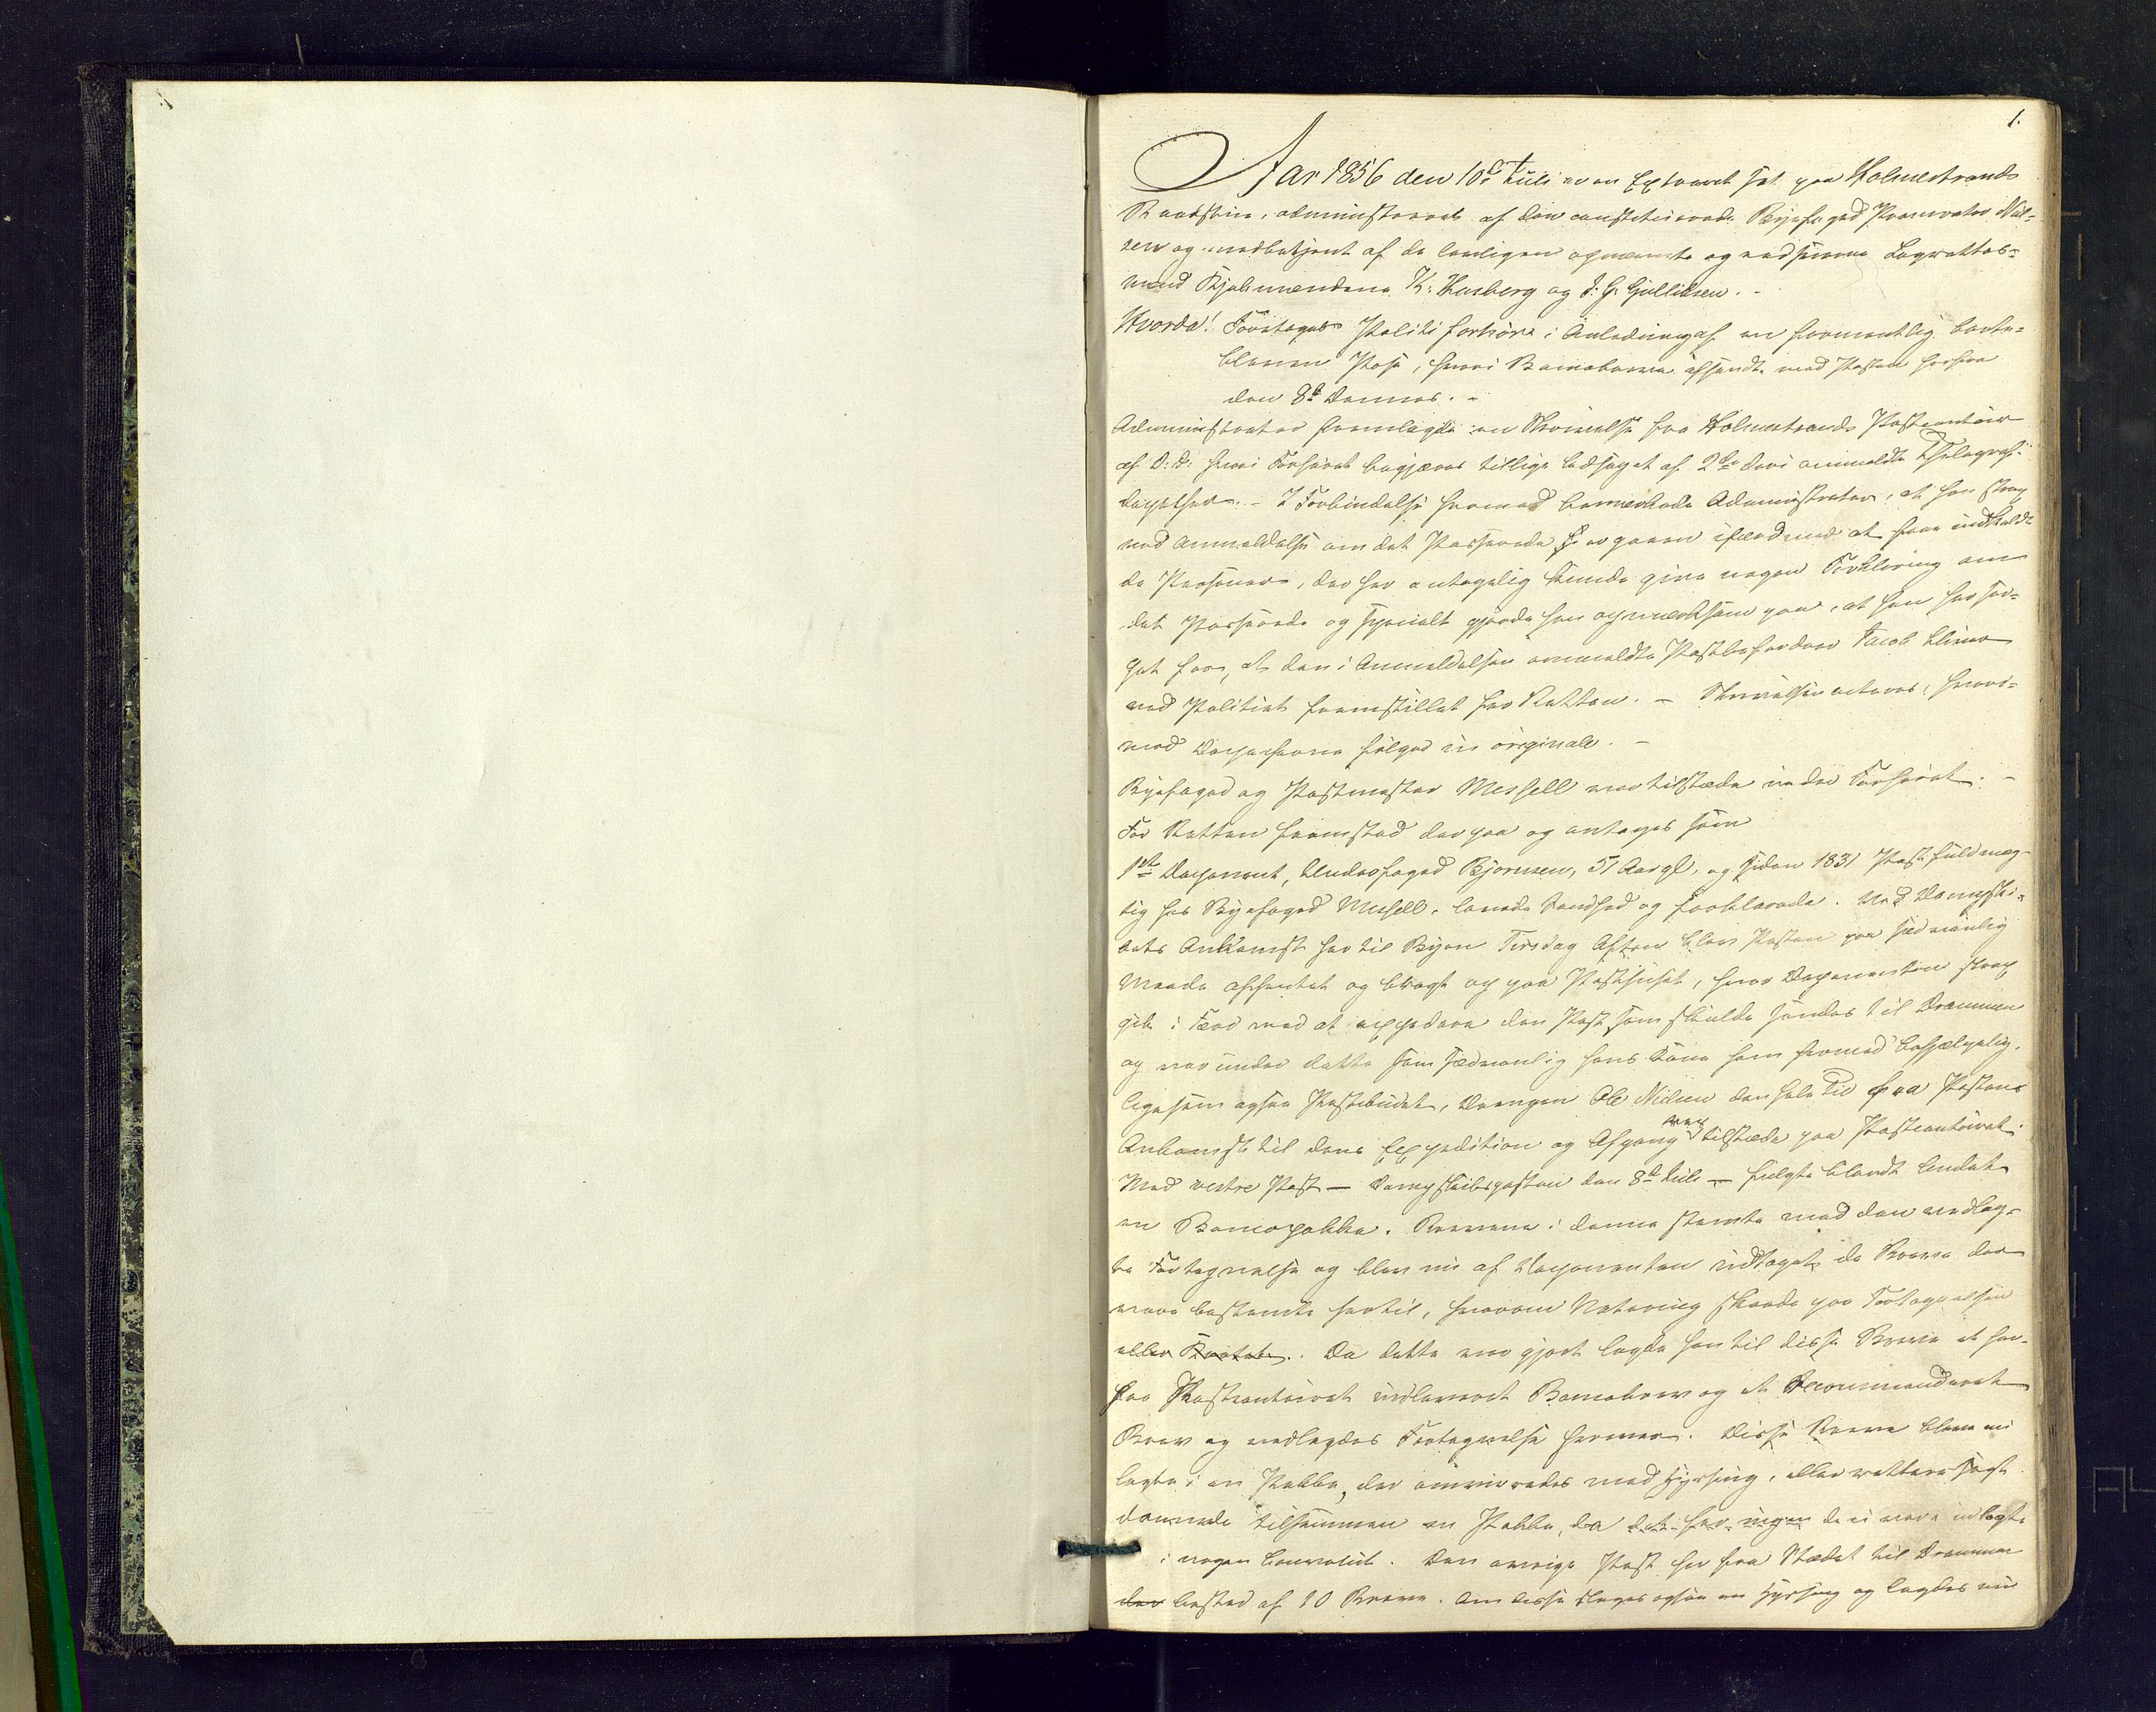 1.
Aar 1856 den 10de Juli var en Extraret sat paa Holmestrands
Raadstue, administreret af den constituerede Byefoged Procurator Niel=
sen og medbetjent af de lovligen opnævnte og edsvorne Lagrettes=
mænd Kjøbmændene K. Husberg og J. G. Gulliksen. -
Hvorda! Foretoges Politiforhør i Anledning af en formentlig bort=
bleven Post, hvori Bancobreve afsendt med Posten herfra
den 8de dennes. -
Administrator fremlagde en Skrivelse fra Holmestrands Postcontoir
af D. D. hvori Forhøret begjæres tillige ledsaget af 2de deri anmeldte Thelegraf-
depescher. - I Forbindelse hermed bemærkede Administrator, at han strax
ved Anmeldelse om det Passerede er gaaen ifærd med at faae indkaldt
de Personer, der her antagelig kunde give nogen Forklaring om
det Passerede og specielt gjorde han opmærksom paa, at han har sør=
get for, at den i Anmeldelsen ommeldte Postbefordrer Jacob
ved Politiet fremstillet for Retten. - Skrivelsen acteres, hvori=
mod Depescherne følger in originale. -
Byefoged og Postmester Messell var tilstæde under Forhøret. -
For Retten fremstod derpaa og antoges som
1ste Deponent, Underfoged Bjørnsen, 51 Aar gl. og siden 1831 Postfuldmæg-
tig hos Byefoged Messell, lovede Sandhed og forklarede. Ved Dampski-
bets Ankomst her til Byen Tirsdag Aften blev Posten paa sædvanlig
Maade afhentet og bragt op paa Posthuset, hvor Deponenten strax
gik i Færd med at expedere den Post som skulde sendes til Drammen
og var under dette som sædvanlig hans Kone ham hermed behjælpelig.
ligesom ogsaa Postbudet, Drengen Ole Nielsen den hele Tid fra Postens
Ankomst til dens Expedition og Afgang var tilstæde paa Postcontoiret.
Med vestre Post - Dampskibsposten den 8de Juli - fulgte blandt Andet
en Bancopakke. Brevene i denne stemte med den vedlag-
te Fortegnelse og blev nu af Deponenten udtaget de Breve der
vare bestemte hertil, hvorom Notering skeede paa Fortegnelsen
eller Kartet. Da dette var gjort lagde han til disse Breve et her-
fra Postcontoiret indleveret Bancobrev og et Recommanderet
Brev og vedlagdes Fortegnelse herover. Disse Breve bleve nu
lagte i en Pakke, der omvundes med Hyssing, eller rettere sagt
dannede tilsammen en Pakke, da det her ingen de ei vare indlagt
i nogen Convolut. Den øvrige Post her fra Stædet til Drammen
der bestod af 10 Breve. Om disse sloges ogsaa en Hyssing og lagdes nu